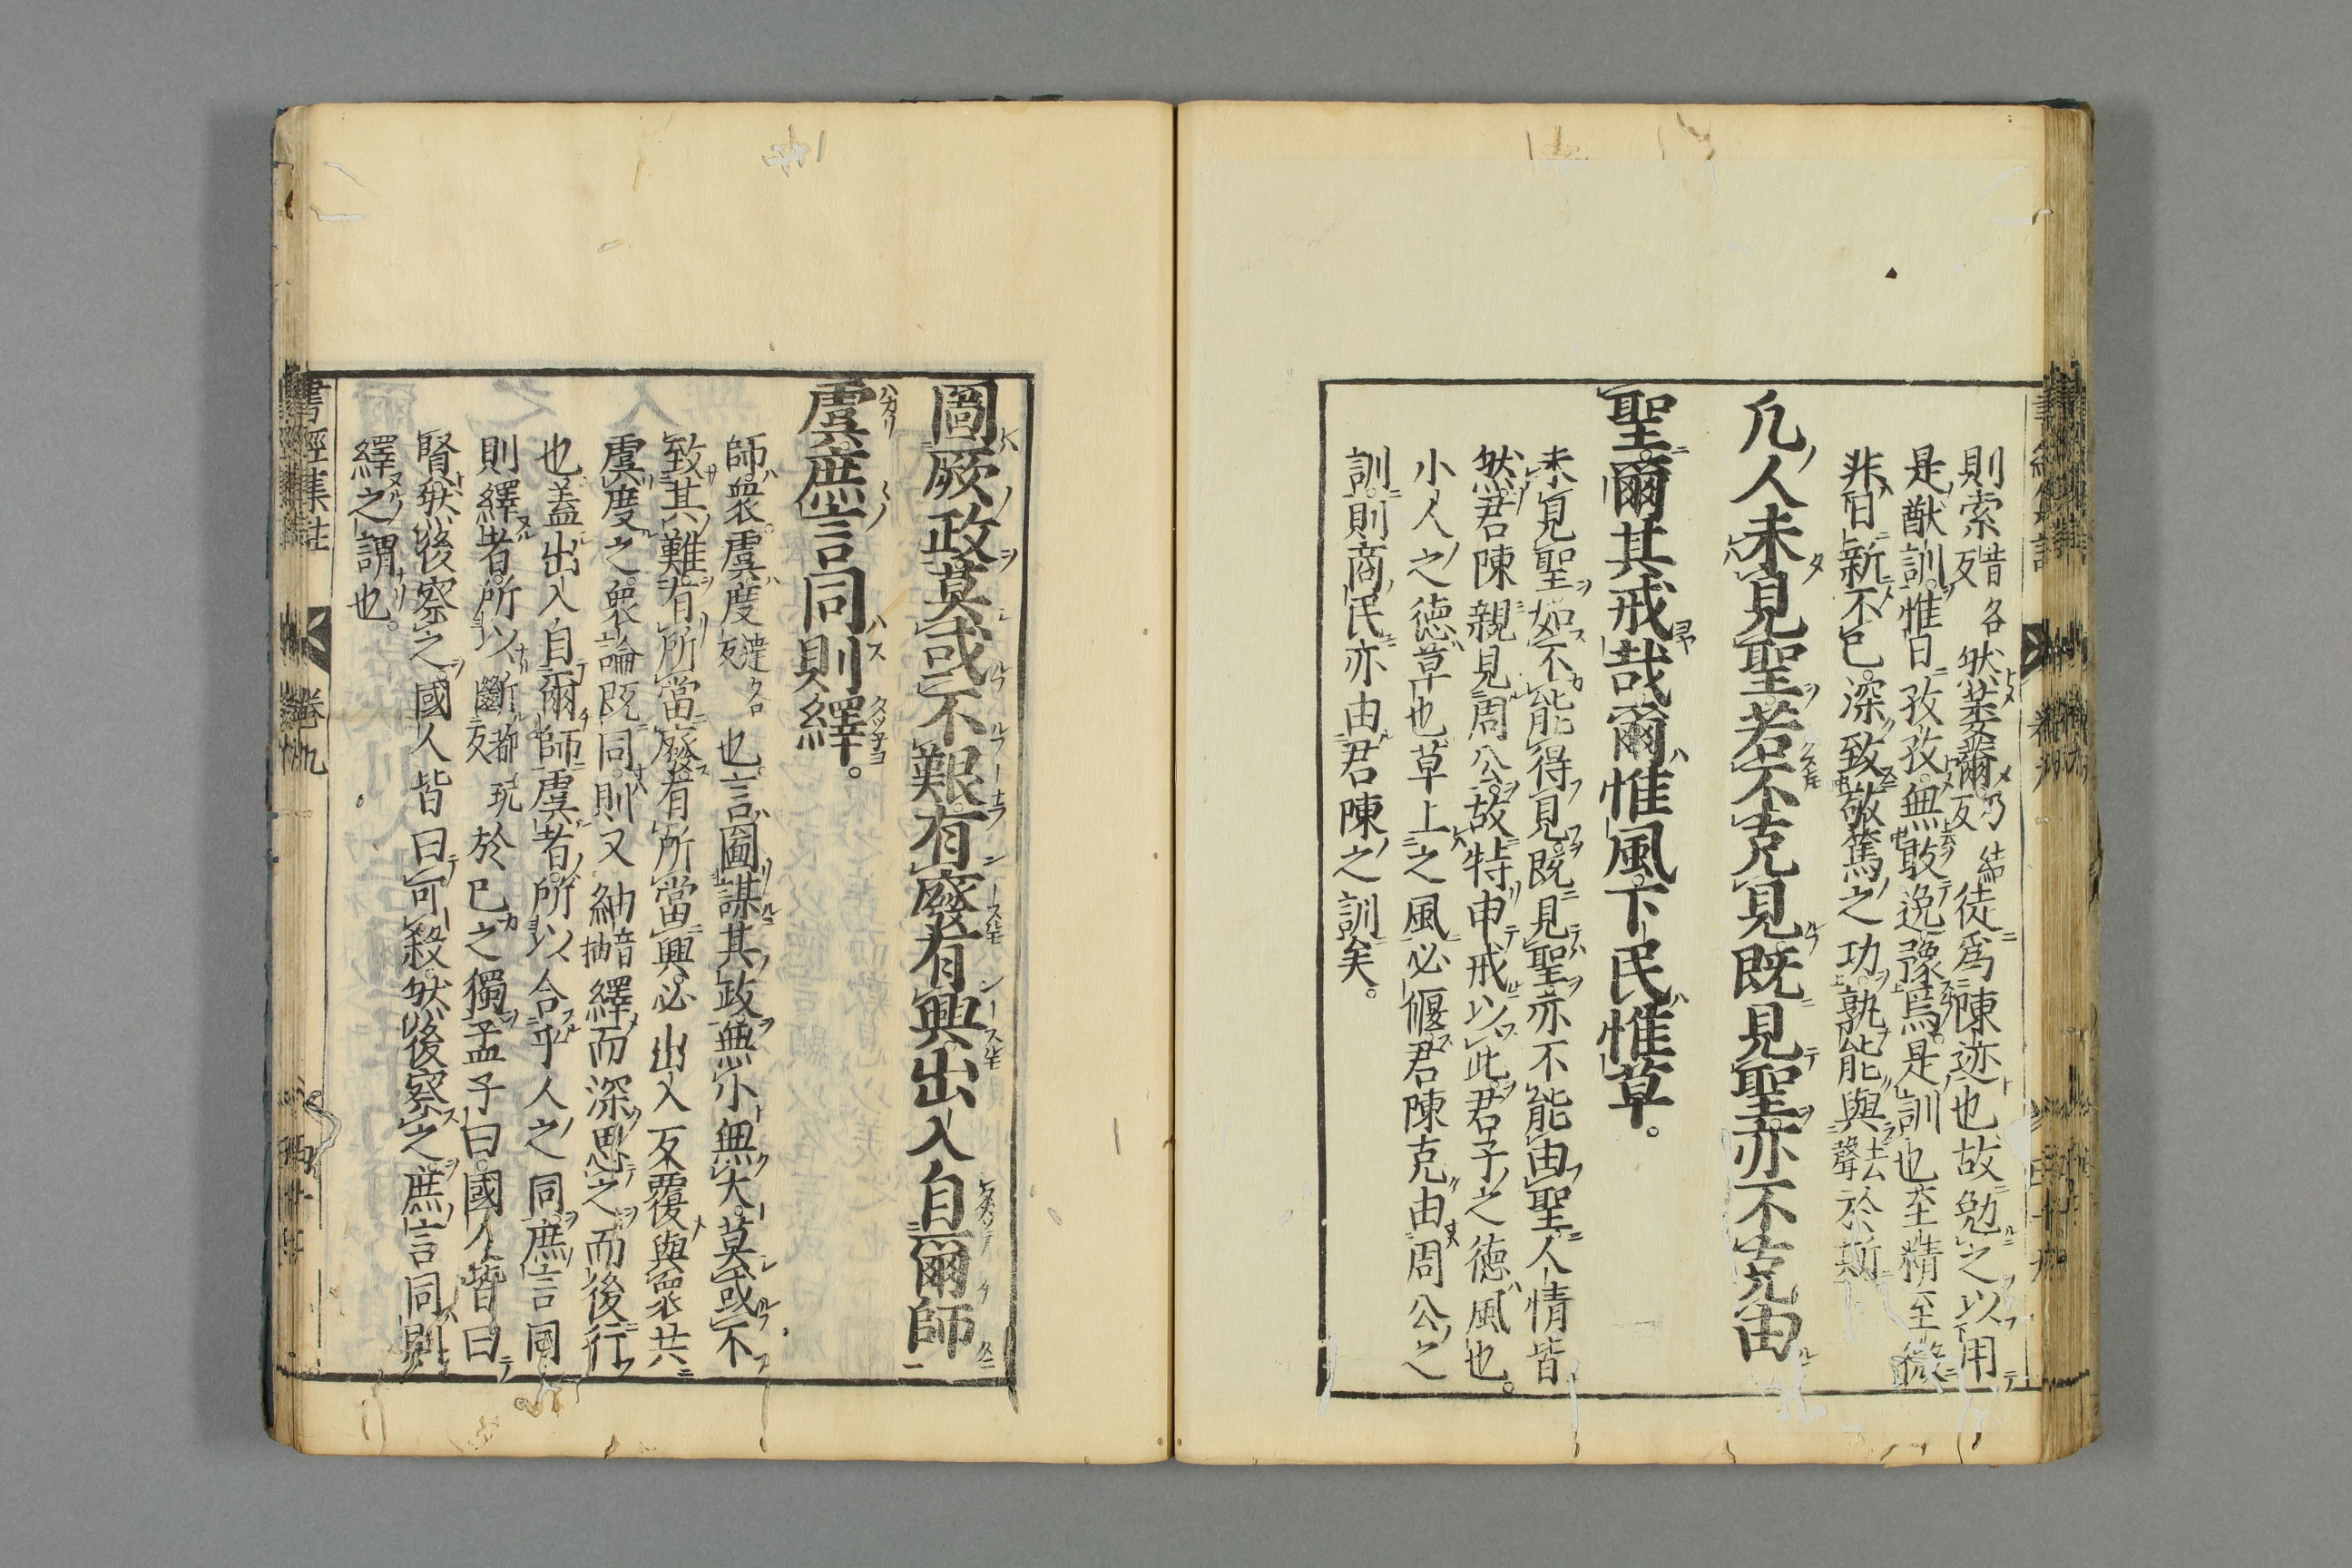 則索昔各反然柴爾乃結反徒爲陳迹也故勉之以用
是猷訓惟日孜孜無敢逸豫焉是訓也至精至微
非日新不已深致敬篤之功孰能與去聲於斯
凡人未見聖若不克見既見聖亦不克由
聖爾其戒哉爾惟風下民惟草。
未見聖如不能得見既見聖亦不能由聖人情皆
然君陳親見周公故特申戒以此君子之德風也。
小人之德草也草上之風必偃君陳克由周公之
訓則商民亦由君陳之訓矣。
圖厥政莫或不艱有廢有興出入自爾師
虞庶言同則繹。
師衆虞度達各反也言圖謀其政無小無大莫或不
致其難有所當廢有所當興必出入反覆與衆共
虞度之衆論既同則又紬音抽繹而深思之而後行
也蓋出入自爾師虞者所以合乎人之同庶言同
則繹者所以斷都玩反於已之獨孟子曰國人皆曰
賢然後察之國人皆曰可殺然後察之庶言同則
繹之謂也。
書經集註 卷九